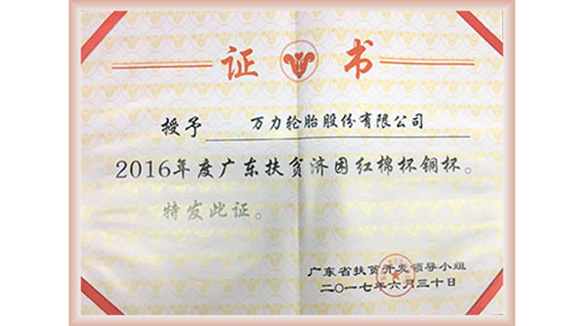 证书
授予 万力轮胎股份有限公司
2016年度广东扶贫济困红棉杯铜杯。
特发此证。
广东省扶贫开发领导小组
二〇一七年六月三十日